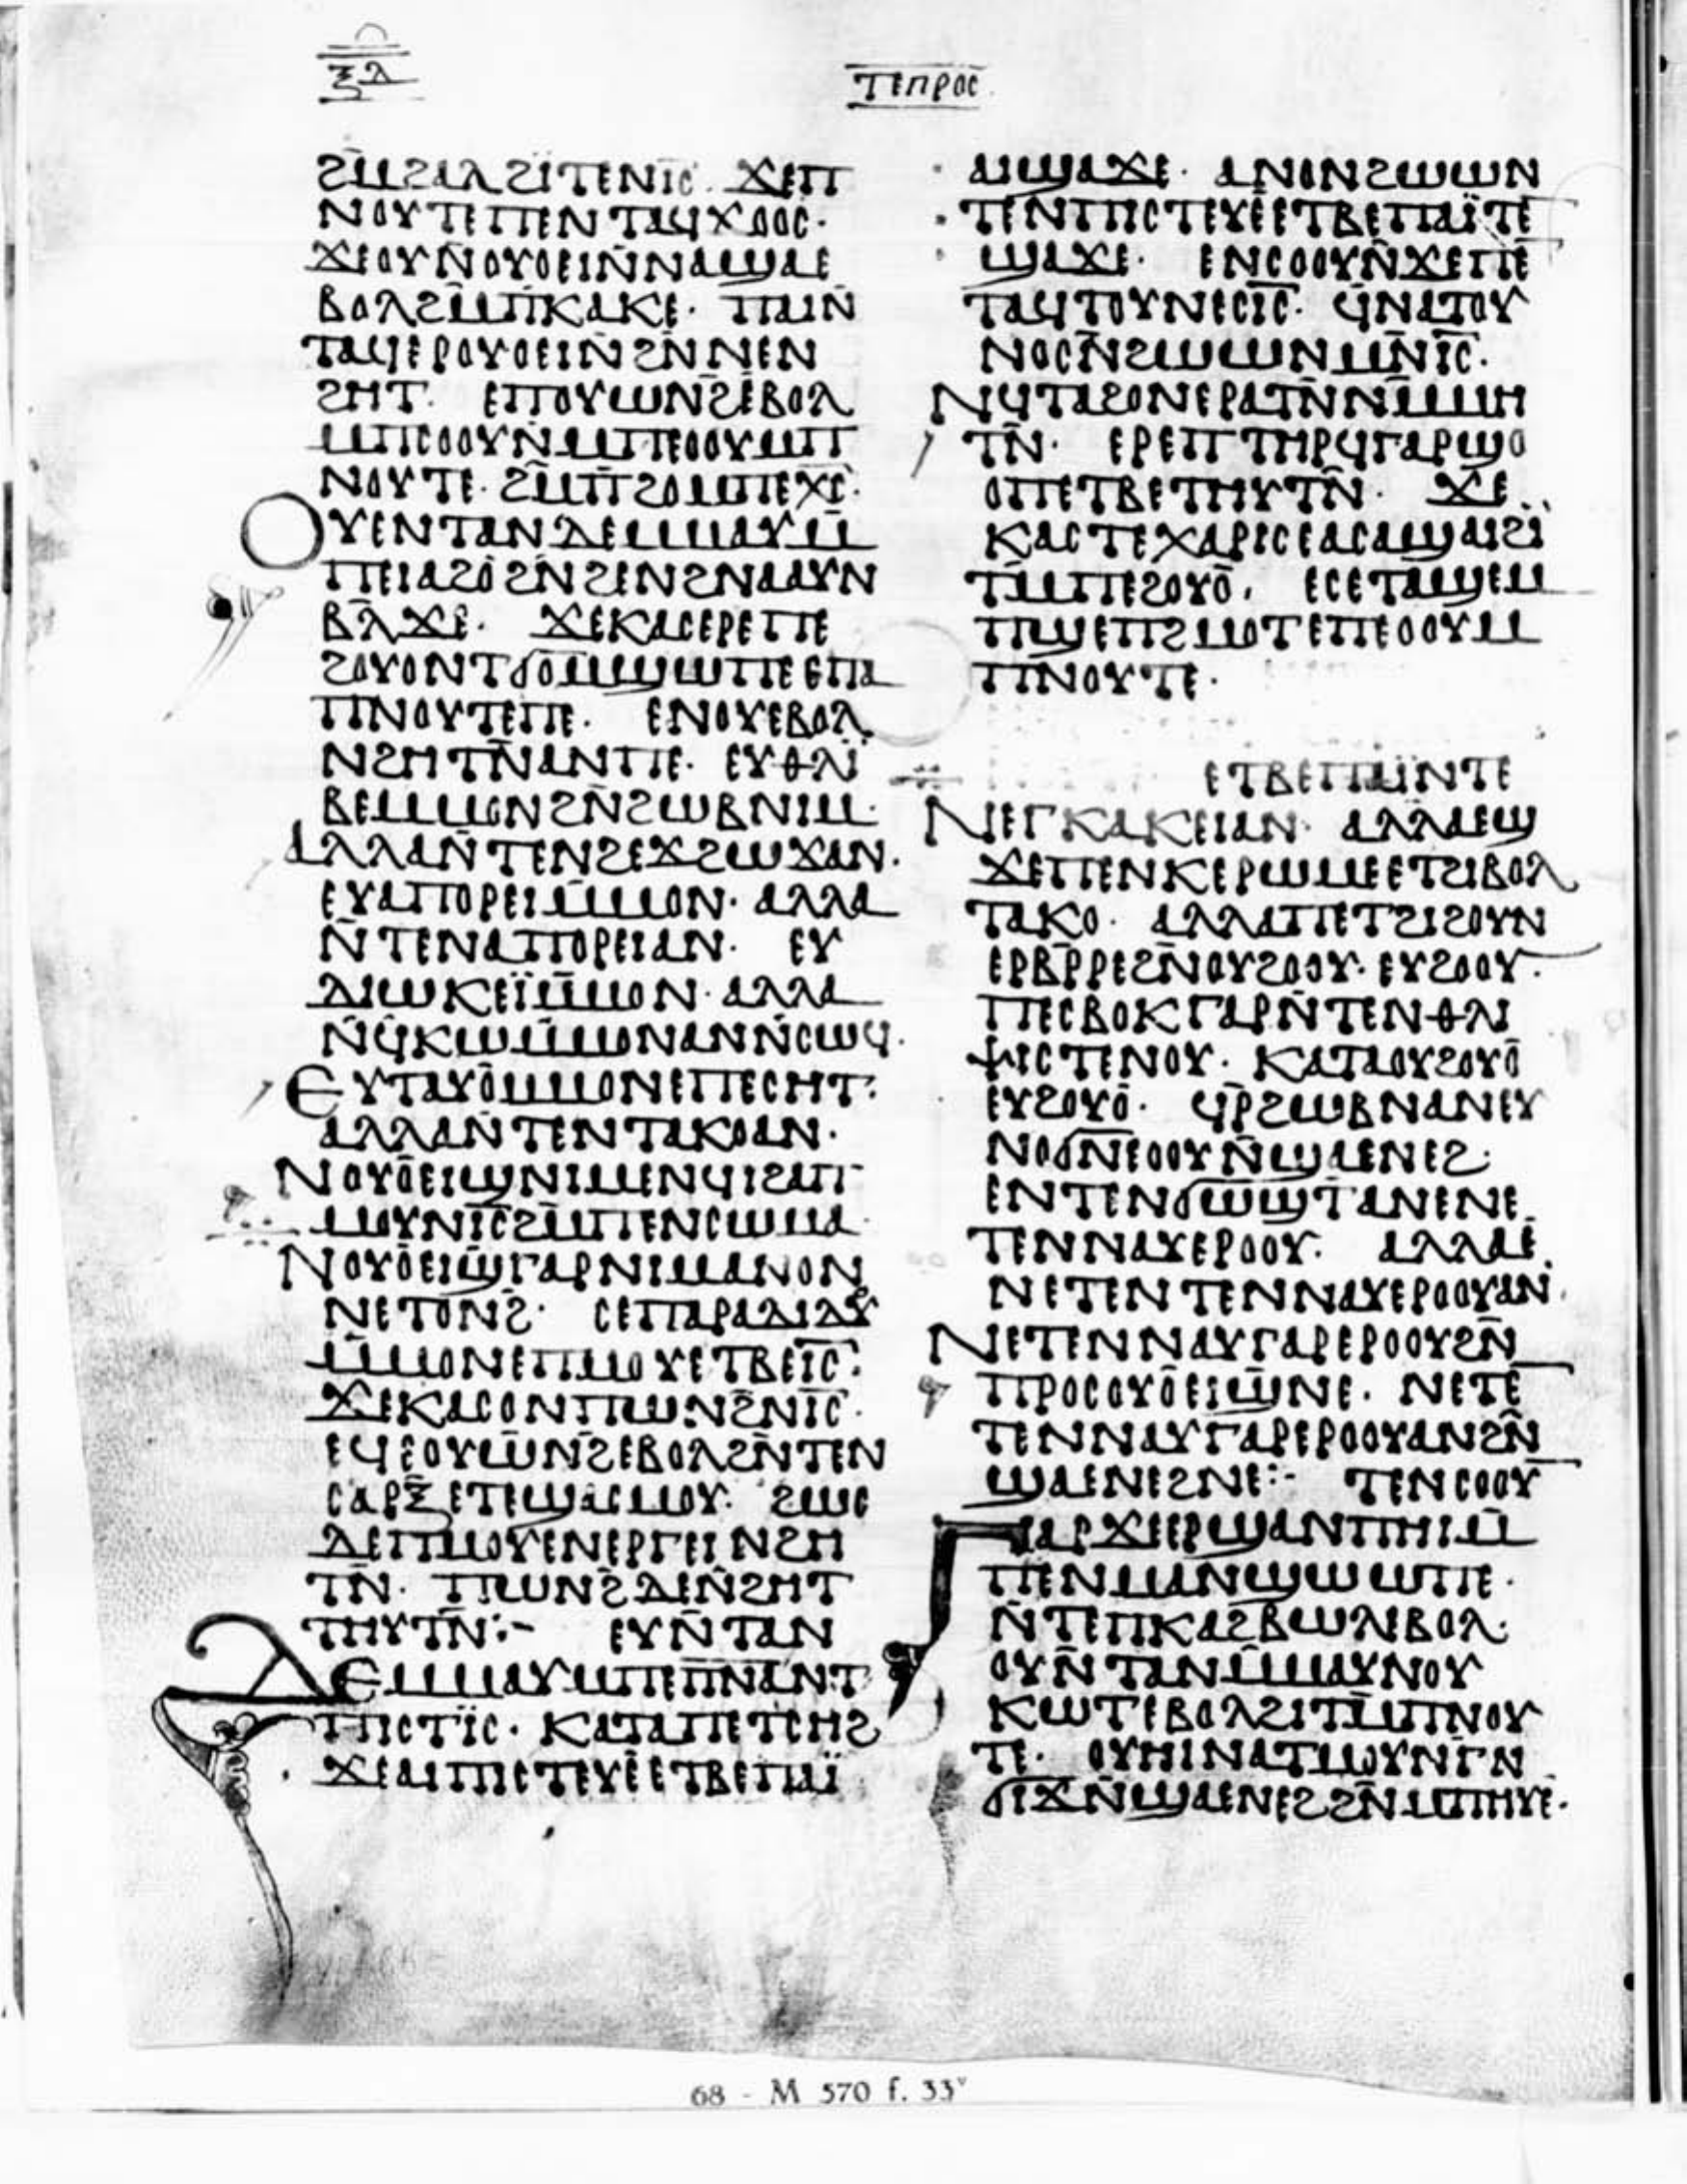 ⲝⲁ
ⲧⲉⲡⲣⲟⲥ
ϩⲙϩⲁⲗ ϩⲓⲧⲉⲛⲓ̅ⲥ̅· ϫⲉⲡ
ⲛⲟⲩⲧⲉⲡⲉⲛⲧⲁϥϫⲟⲟⲥ·
ϫⲉⲟⲩⲛ̄ⲟⲩⲟⲉⲓⲛ̄ⲛⲁϣⲁⲉ
ⲃⲟⲗϩⲙ̄ⲡⲕⲁⲕⲉ· ⲡⲁⲓⲛ̄
ⲧⲁϥⲉⲣⲟⲩⲟⲉⲓⲛ̄ϩⲛ̄ⲛⲉⲛ
ϩⲏⲧ· ⲉⲡⲟⲩⲱⲛϩ̄ⲉⲃⲟⲗ
ⲙⲡⲥⲟⲟⲩⲛ̄ⲙⲡⲉⲟⲟⲩⲙⲡ
ⲛⲟⲩⲧⲉ· ϩⲙ̄ⲡϩⲟⲙⲡⲉⲭ̅ⲥ̅·
ⲟⲩⲉⲛⲧⲁⲛⲇⲉⲙⲙⲁⲩⲙ̄
ⲡⲉⲓⲁϩⲟ̄ϩⲛϩⲉⲛϩⲛⲁⲁⲩⲛ
ⲃⲗ̄ϫⲉ· ϫⲉⲕⲁⲥⲉⲣⲉⲡⲉ
ϩⲟⲩⲟⲛⲧϭⲟⲙϣⲱⲡⲉⲉⲡⲁ
ⲡⲛⲟⲩⲧⲉⲡⲉ· ⲉⲛⲟⲩⲉⲃⲟⲗ
ⲛϩⲏⲧⲛ̄ⲁⲛⲡⲉ· ⲉⲩⲑⲗⲓ
ⲃⲉⲙⲙⲟⲛϩⲛ̄ϩⲱⲃⲛⲓⲙ·
ⲁⲗⲗⲁⲛ̄ⲧⲉⲛϩⲉϫϩⲱϫⲁⲛ·
ⲉⲩⲁⲡⲟⲣⲉⲓⲙ̄ⲙⲟⲛ· ⲁⲗⲗⲁ
ⲛ̄ⲧⲉⲛⲁⲡⲟⲣⲉⲓⲁⲛ· ⲉⲩ
ⲇⲓⲱⲕⲉⲓ̈ⲙ̄ⲙⲟⲛ· ⲁⲗⲗⲁ
ⲛ̄ϥⲕⲱⲙ̄ⲙⲟⲛⲁⲛⲛ̄ⲥⲱϥ·
ⲉⲩⲧⲁⲩⲟ̄ⲙⲙⲟⲛⲉⲡⲉⲥⲏⲧ·
ⲁⲗⲗⲁⲛ̄ⲧⲉⲛⲧⲁⲕⲟⲁⲛ·
ⲛⲟⲩⲟ̄ⲉⲓϣⲛⲓⲙⲉⲛϥⲓϩⲁⲡ
ⲙⲟⲩⲛⲓ̅ⲥ̅ϩⲙ̄ⲡⲉⲛⲥⲱⲙⲁ·
ⲛⲟⲩⲟ̄ⲉⲓϣ̄ⲅⲁⲣⲛⲓⲙⲁⲛⲟⲛ
ⲛⲉⲧⲟⲛϩ̄· ⲥⲉⲡⲁⲣⲁⲇⲓⲇⲟⲩ
ⲙ̄ⲙⲟⲛⲉⲡⲙⲟⲩⲉⲧⲃⲉⲓ̅ⲥ̅·
ϫⲉⲕⲁⲥⲟⲛⲡⲱⲛϩ̄ⲛⲓ̅ⲥ̅·
ⲉϥⲉⲟⲩⲱⲛϩⲉⲃⲟⲗϩⲛ̄ⲧⲉⲛ
ⲥⲁⲣⲝ̄ⲉⲧⲉϣⲁⲥⲙⲟⲩ· ϩⲱⲥ
ⲇⲉⲡⲙⲟⲩⲉⲛⲉⲣⲅⲉⲓⲛϩⲏ
ⲧⲛ̄· ⲡⲱⲛϩ̄ⲇⲉⲛ̄ϩⲏⲧ
ⲧⲏⲩⲧⲛ̄:- ⲉⲩⲛ̄ⲧⲁⲛ
ⲇⲉⲙⲙⲁⲩⲙⲡⲉⲡ̅ⲛ̅ⲁ̅ⲛⲧ
ⲡⲓⲥⲧⲓ̈ⲥ· ⲕⲁⲧⲁⲡⲉⲧⲥⲏϩ
ϫⲉⲁⲓⲡⲓⲥⲧⲉⲩⲉ̄ⲉⲧⲃⲉⲡⲁⲓ̈
ⲁⲓϣⲁϫⲉ· ⲁⲛⲟⲛϩⲱⲱⲛ
ⲧⲉⲛⲡⲓⲥⲧⲉⲩⲉⲉⲧⲃⲉⲡⲁⲓ̈ⲧⲉ
ϣⲁϫⲉ· ⲉⲛⲥⲟⲟⲩⲛ̄ϫⲉⲡⲉ̄
ⲧⲁϥⲧⲟⲩⲛⲉⲥⲓ̅ⲥ̅· ϥⲛⲁⲧⲟⲩ
ⲛⲟⲥⲛ̄ϩⲱⲱⲛⲙⲛ̄ⲓ̅ⲥ̅·
ⲛϥⲧⲁϩⲟⲛⲉⲣⲁⲧⲛ̄ⲛⲙ̄ⲙⲏ
ⲧⲛ̄· ⲉⲣⲉⲡⲧⲏⲣϥⲅⲁⲣϣⲟ
ⲟⲡⲉⲧⲃⲉⲧⲏⲩⲧⲛ̄· ϫⲉ
ⲕⲁⲥⲧⲉⲭⲁⲣⲓⲥⲉⲁⲥⲁϣⲁⲓϩⲓ
ⲧⲙ̄ⲡⲉϩⲟⲩⲟ̄· ⲉⲥⲉⲧⲁϣⲉⲙ
ⲡϣⲉⲡϩⲙⲟⲧⲉⲡⲉⲟⲟⲩⲙ
ⲡⲛⲟⲩⲧⲉ·
ⲉⲧⲃⲉⲡⲁⲓ̈ⲛⲧⲉ
ⲛⲉⲅⲕⲁⲕⲉⲓⲁⲛ· ⲁⲗⲗⲁⲉϣ
ϫⲉⲡⲉⲛⲕⲉⲣⲱⲙⲉⲉⲧϩⲓⲃⲟⲗ
ⲧⲁⲕⲟ· ⲁⲗⲗⲁⲡⲉⲧϩⲓϩⲟⲩⲛ
ⲉⲣⲃ̄ⲣⲣⲉϩⲛ̄ⲟⲩϩⲟⲟⲩ· ⲉⲩϩⲟⲟⲩ·
ⲡⲉⲥⲃⲟⲕⲅⲁⲣⲛ̄ⲧⲉⲛⲑⲗⲓ
ⲯⲓⲥⲧⲉⲛⲟⲩ· ⲕⲁⲧⲁⲟⲩϩⲟⲩⲟ̄
ⲉⲩϩⲟⲩⲟ̄· ϥⲣ̄ϩⲱⲃⲛⲁⲛⲉⲩ
ⲛⲟϭⲛ̄ⲉⲟⲟⲩⲛ̄ϣⲁⲉⲛⲉϩ·
ⲉⲛⲧⲉⲛϭⲱϣⲧ̄ⲁⲛⲉⲛⲉ
ⲧⲉⲛⲛⲁⲩⲉⲣⲟⲟⲩ· ⲁⲗⲗⲁⲉ
ⲛⲉⲧⲉⲛⲧⲉⲛⲛⲁⲩⲉⲣⲟⲟⲩⲁⲛ·
ⲛⲉⲧⲉⲛⲛⲁⲩⲅⲁⲣⲉⲣⲟⲟⲩϩⲛ̄
ⲡⲣⲟⲥⲟⲩⲟ̄ⲉⲓϣ̄ⲛⲉ· ⲛⲉⲧⲉ̄
ⲧⲉⲛⲛⲁⲩⲅⲁⲣⲉⲣⲟⲟⲩⲁⲛϩⲛ̄
ϣⲁⲉⲛⲉϩⲛⲉ:- ⲧⲉⲛⲥⲟⲟⲩ
ⲅⲁⲣϫⲉⲉⲣϣⲁⲛⲡⲏⲓⲙ̄
ⲡⲉⲛⲙⲁⲛϣⲱⲱⲡⲉ·
ⲛ̄ⲧⲉⲡⲕⲁϩⲃⲱⲗⲉⲃⲟⲗ·
ⲟⲩⲛ̄ⲧⲁⲛⲙ̄ⲙⲁⲩⲛⲟⲩ
ⲕⲱⲧⲉⲃⲟⲗϩⲓⲧⲙ̄ⲡⲛⲟⲩ
ⲧⲉ· ⲟⲩⲏⲓⲛⲁⲧⲙⲟⲩⲛⲅ̄ⲛ
ϭⲓϫⲛ̄ϣⲁⲉⲛⲉϩϩⲛ̄ⲙⲡⲏⲩⲉ·
68 - M 570 f. 33ᵛ